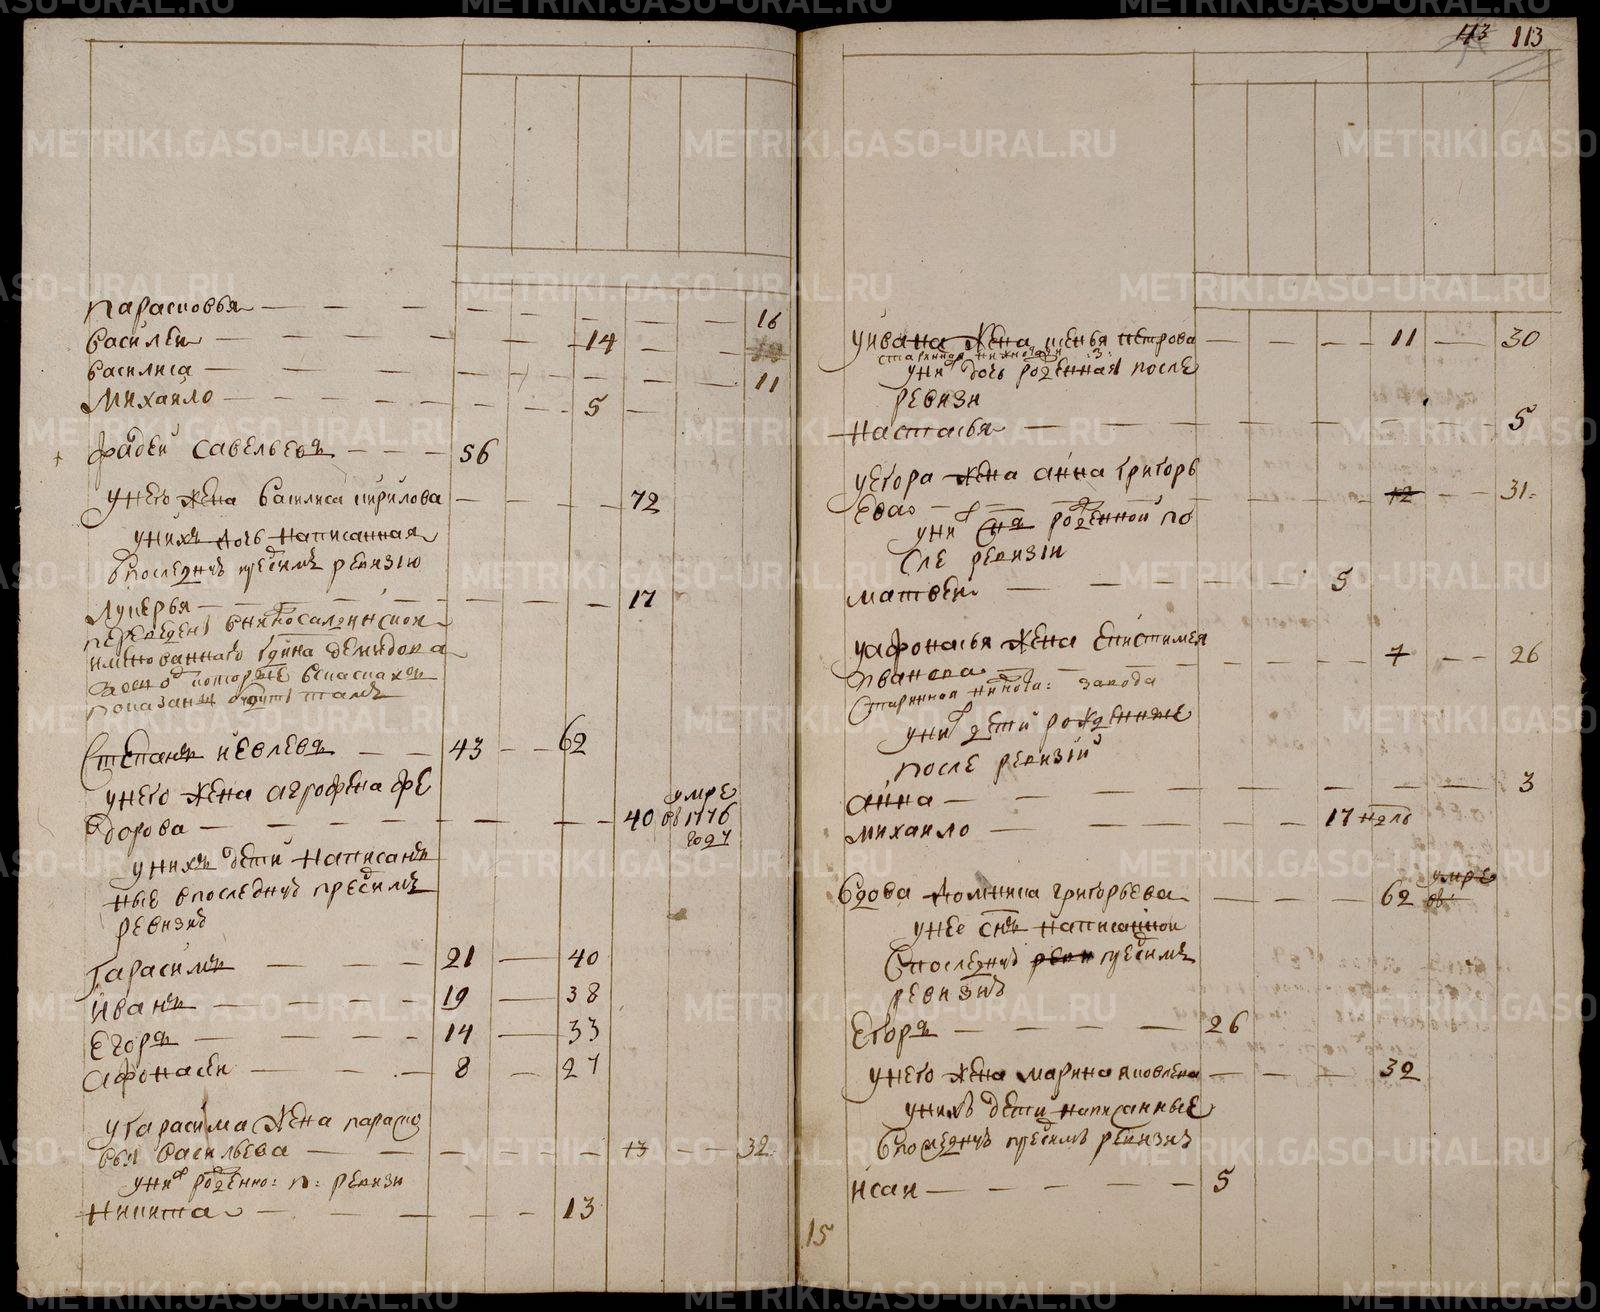 парасковья — — — — — — — 16
василеи — — — — 14 — —
василиса — — — — — — — 11
михаило — — — — 5 —
+ фадей савельевъ — — — 56
унего жена василиса кирилова — — — 72
унихъ дочь написанная
впоследнуъ предсимъ ревизию
лукерья — — — — — 17
переведена внижносалдинскои
имянованнаго Гдина демидова
показаны будутъ тамъ
Степанъ иевлевъ — — 43 — — 62
унего жена агрофена фе
дорова — — — — — — 40 умре в 1776 году
унихъ дети написан
ные впоследнуъ предсимъ
ревизиъ
Гарасимъ — — 21 — 40
иванъ — — — — 19 — 38
Егоръ — — — — 14 — 33
афонасеи — — — 8 — 27
угарасима жена параско
вья васильева — — — — — 13 — — 32
уних рожденно: п: ревизи
никита — — — — — 13
113 113
уивана жена ксенья петрова — — — — 11 — 30
уних дочь рожденная после
ревизи
настасья — — — — — — — 5
уегора жена анна григорь
ева — — — — — 12 — — 31
уних снъ рожденной по
сле ревизии
матвеи — — — — — 5
уафонасья жена епистимея
иванова — — — — — 7 — — 26
Старинной нижнота: завода
уних дети рожденные
после ревизии
анна — — — — — — — 3
михаило — — — — — 17 ндль
вдова домника григорьева — — — — 62 умре
унее снъ написанной
впоследнуъ реви предсимъ
ревизиъ
Егоръ — — — — 26
унего жена марина яковлева — — — 32
унихъ дети написанные
впоследнуъ предсимъ ревизиъ
исаи — — — — 5
15
METRIKI.GASO-URAL.RU